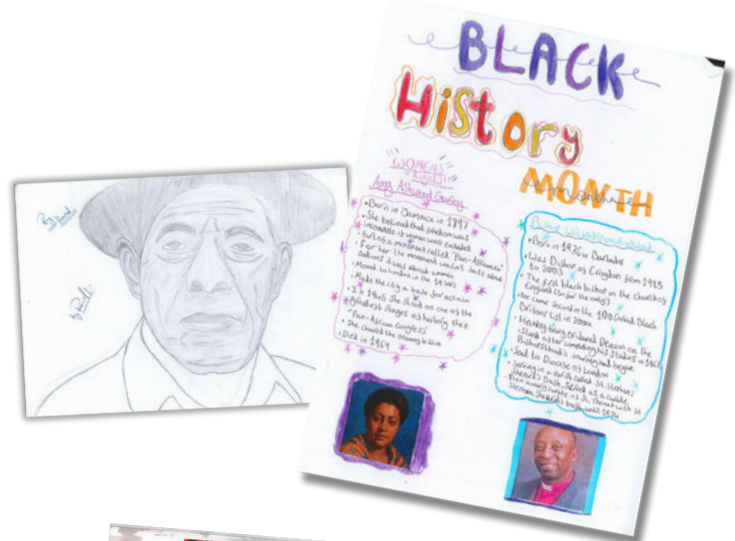 BLACK
History
MONTH
WOMEN'S
Amy Ashwood Garvey
• Born in Jamaica in 1897
• She believed that freedom was
incomplete if women were excluded
• Part of a movement called "Pan-Africanism"
• For her the movement wasn't just about
nations it was about women
• Moved to London in the 1930's
• Made the city a base for activism
• In 1945 she stood on one of the
greatest stages of history the
"Pan-African Congress"
• She chaired the opening session
• Died in 1969
• Born in 1936 in Barbados
• Was Bishop of Croydon from 1985
to 2003
• The first black bishop in the church of
England (so far the only)
• He came second in the 100 Great Black
Britons list in 2004
• Having being ordained Deacon on the
island after completing his studies in 1962
• Sent to Diocese of London
• Serving in a parish called St Stephens
Shepherd's Bush, served as a curate
By